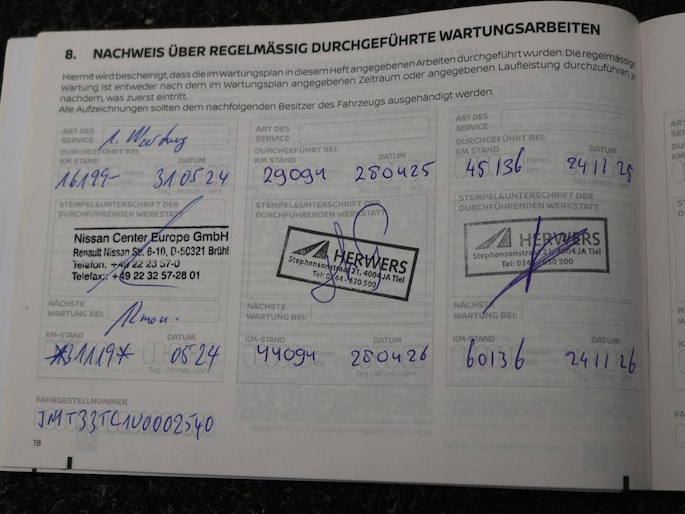 8. NACHWEIS ÜBER REGELMÄSSIG DURCHGEFÜHRTE WARTUNGSARBEITEN
Hiermit wird bescheinigt, dass die im Wartungsplan in diesem Heft angegebenen Arbeiten durchgeführt wurden. Die regelmässige
Wartung ist entweder nach dem im Wartungsplan angegebenen Zeitraum oder angegebenen Laufleistung durchzuführen, je
nachdem, was zuerst eintritt.
Alle Aufzeichnungen sollten dem nachfolgenden Besitzer des Fahrzeugs ausgehändigt werden.
ART DES
SERVICE
1. Wartung
DURCHGEFÜHRT BEI:
KM STAND DATUM
16199- 31 05 24
STEMPEL&UNTERSCHRIFT DER
DURCHFÜHRENDEN WERKSTATT
Nissan Center Europe GmbH
Renault Nissan Str. 6-10, D-50321 Brühl
Telefon: +49 22 23 57-0
Telefax: +49 22 32 57-28 01
NÄCHSTE
WARTUNG BEI:
KM-STAND DATUM
05-24
Tag - Monat - Jahr
ART DES
SERVICE
DURCHGEFÜHRT BEI:
KM STAND DATUM
29091 280425
Tag - Monat - Jahr
STEMPEL&UNTERSCHRIFT DER
DURCHFÜHRENDEN WERKSTATT
HERWERS
Stephensonstraat 21, 4004 JA Tiel
NÄCHSTE
WARTUNG BEI:
KM-STAND DATUM
44091 280426
Tag - Monat - Jahr
ART DES
SERVICE
DURCHGEFÜHRT BEI:
KM STAND DATUM
45136 241125
Tag - Monat - Jahr
STEMPEL&UNTERSCHRIFT DER
DURCHFÜHRENDEN WERKSTATT
HERWERS
Stephensonstraat 21, 4004 JA Tiel
NÄCHSTE
WARTUNG BEI:
KM-STAND DATUM
60136 241126
Tag - Monat - Jahr
FAHRGESTELLNUMMER
JMT33TC1U0002540
18